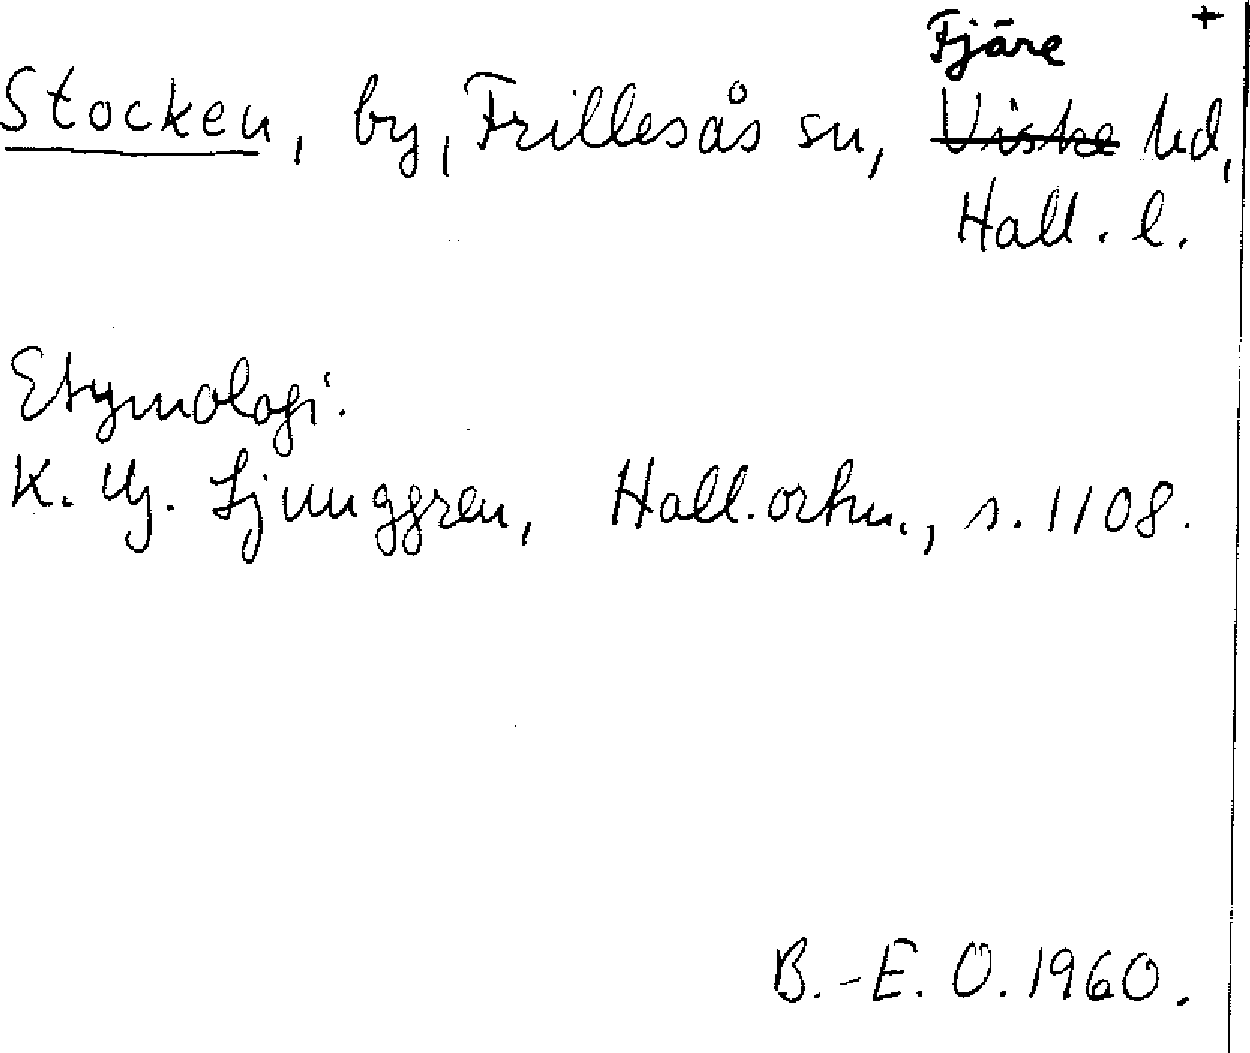 Fjäre +
Stocken, by, Frillesås sn, Viske hd,
Hall. l.
Etymologi.
K. Hj. Ljunggren, Hall.ortn., s. 1108.
B.-E. O. 1960.